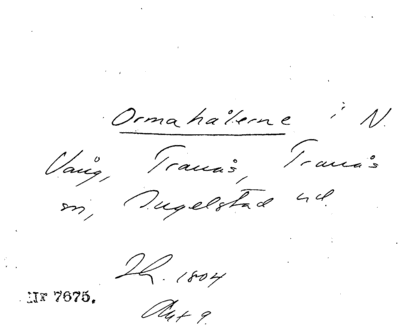 Ormahålerne i N.
Vång, Tranås, Tranås
sn, Ingelstad hd.
Sk. 1804
Akt 9.
MF 7675.